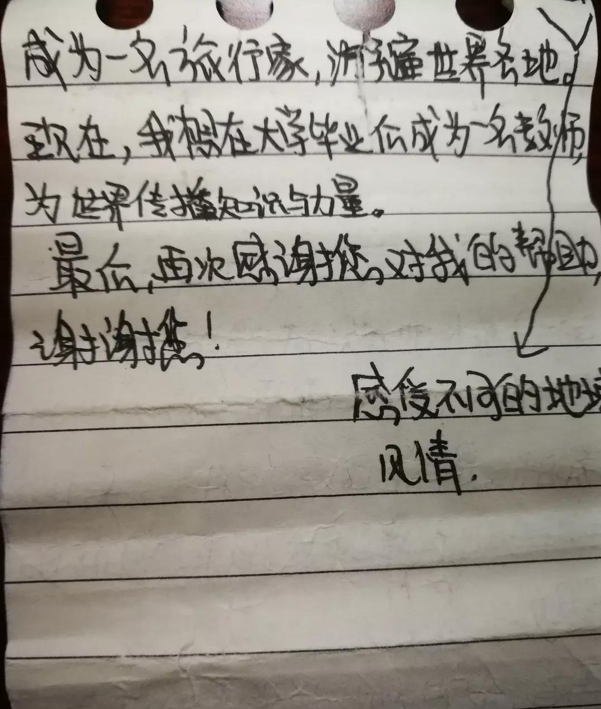 成为一名旅行家，游遍世界各地。
现在，我想在大学毕业后成为一名教师，
为世界传播知识与力量。
最后，再次感谢您对我的帮助，
谢谢您！
感受不同的地域
风情.